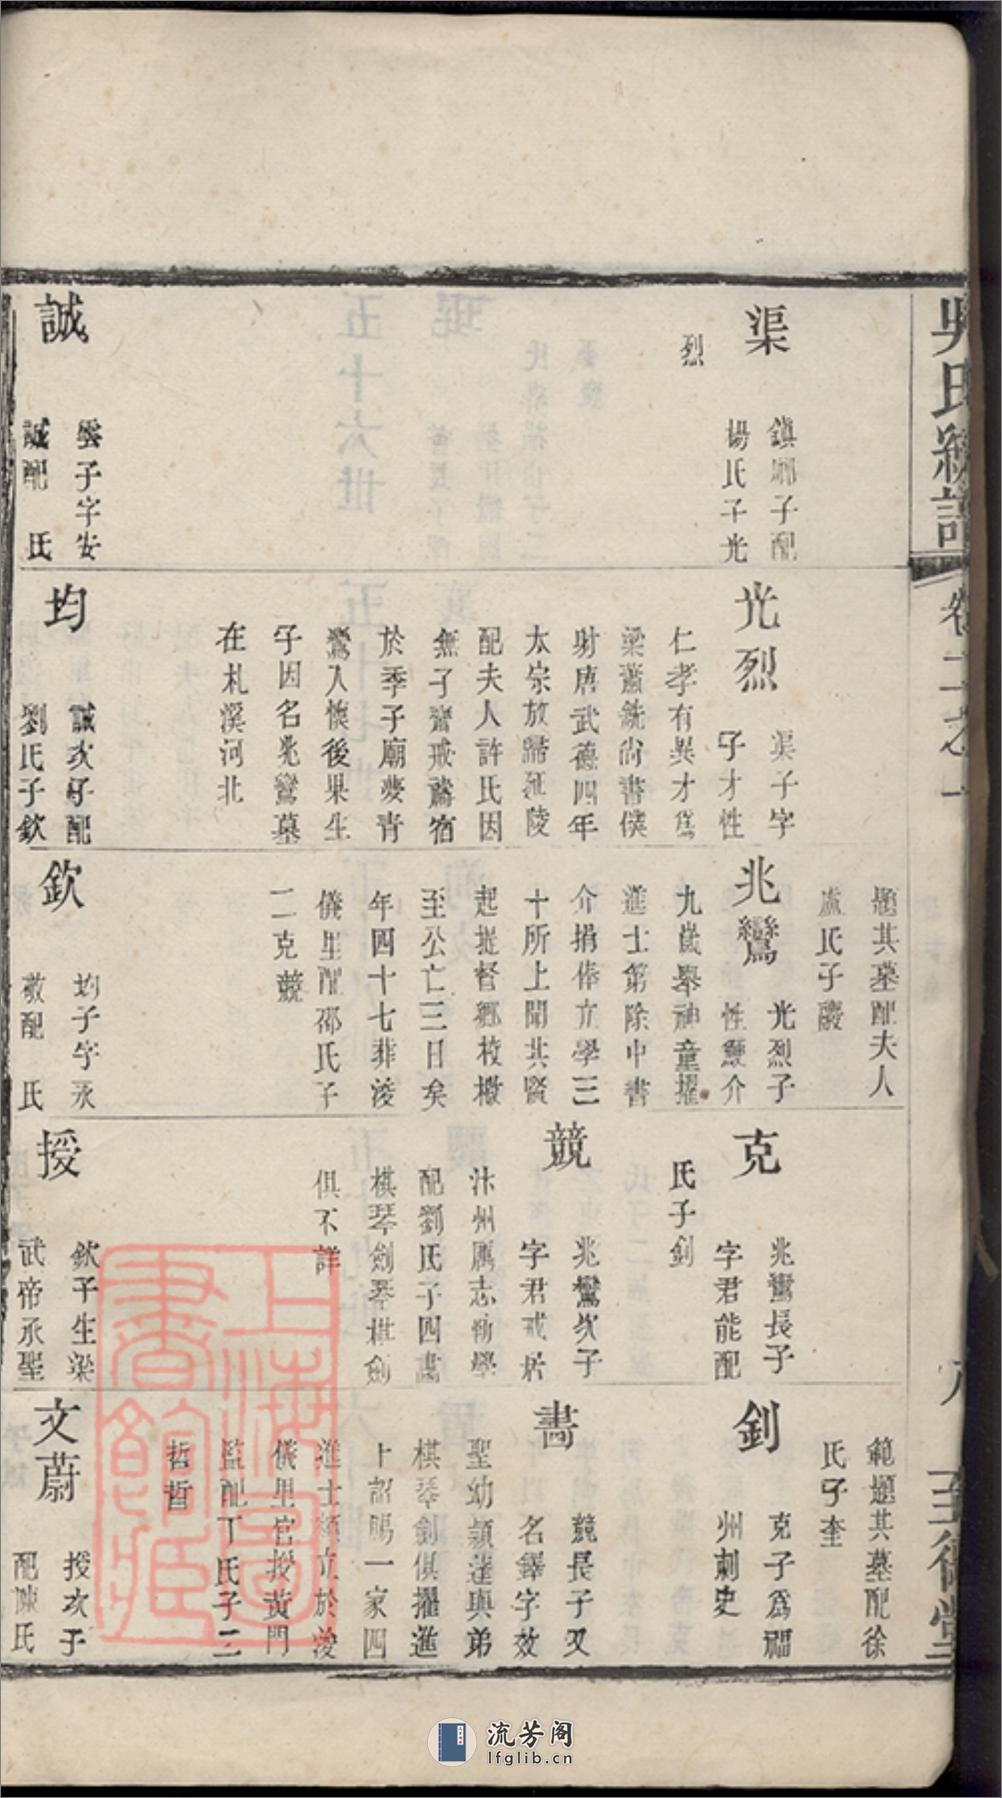 吳氏統譜
卷二之一
至德堂
渠
鎮鄉子配
楊氏子光
烈
誠
雲子字安
誠配 氏
光烈
渠子字
子才性
仁孝有異才爲
梁蕭銑尚書僕
射唐武德四年
太宗放歸延陵
配夫人許氏因
無子齋戒禱宿
於季子廟夢青
鸞入懷後果生
子因名兆鸞墓
在札溪河北
均
誠次子配
劉氏子欽
題其墓配夫人
盧氏子
兆鸞
光烈子
性鯁介
九歲舉神童擢
進士第除中書
介捐俸立學三
十所上聞其賢
起提督鄉校檄
至公亡三日矣
年四十七葬浚
儀里配邵氏子
二克競
欽
均子字永
敬配 氏
克
兆鸞長子
字君能配
氏子釗
競
兆鸞次子
字君戒居
汴州厲志勤學
配劉氏子四畵
棋琴劍琴棋劍
俱不詳
授
欽子生梁
武帝承聖
範題其墓配徐
氏子奎
釗
克子爲福
州刺史
畵
競長子又
名鐸字效
聖幼穎達與弟
棋琴劍俱擢進
上詔賜一家四
進士額立於浚
儀里官授黃門
監配丁氏子二
哲晢
文蔚
授次子
配陳氏
上海圖書館藏
流芳阁
lfglib.cn